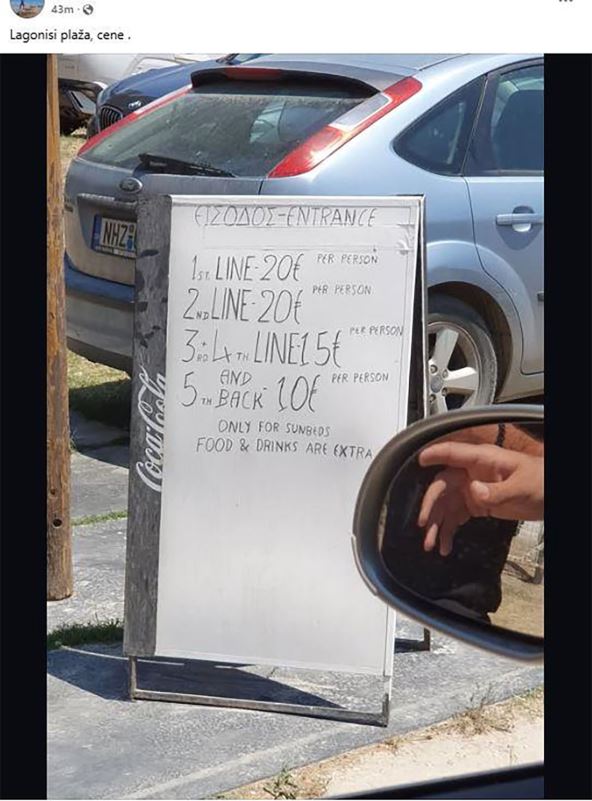 43m ·
Lagonisi plaža, cene .
ΕΙΣΟΔΟΣ-ENTRANCE
1ST. LINE-20€ PER PERSON
2ND LINE-20€ PER PERSON
3RD+4TH LINE15€ PER PERSON
5TH AND BACK-10€ PER PERSON
ONLY FOR SUNBEDS
FOOD & DRINKS ARE EXTRA
Coca-Cola
Ford
NHZ